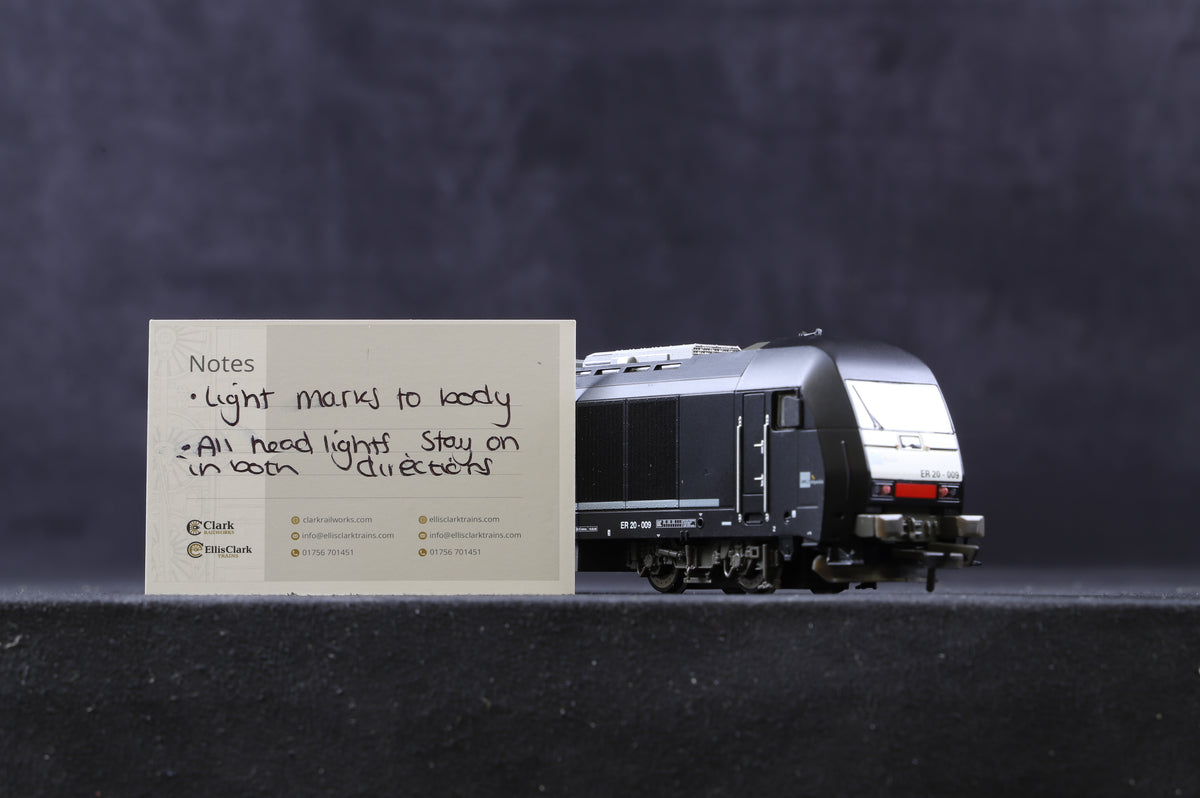 Notes
• Light marks to body
• All head lights stay on
in both directions
Clark
RAILWORKS
EllisClark
TRAINS
clarkrailworks.com
info@ellisclarktrains.com
01756 701451
ellisclarktrains.com
info@ellisclarktrains.com
01756 701451
ER 20 - 009
ER 20 - 009